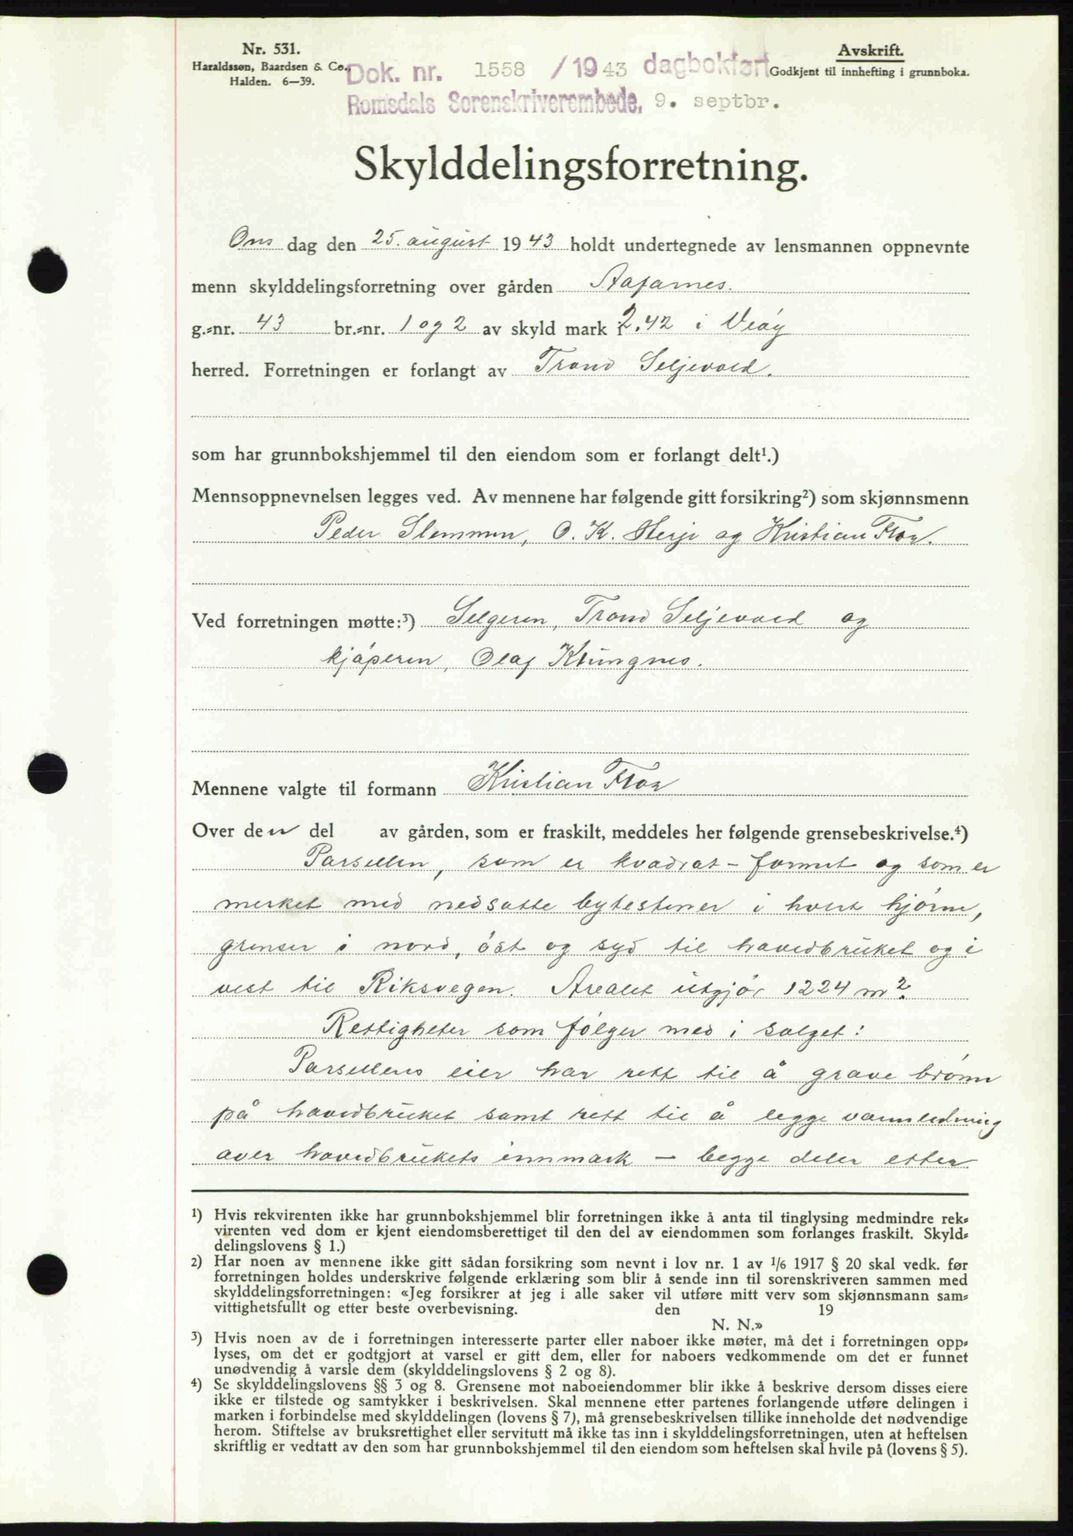 Nr. 531.
Haraldssøn, Baardsen & Co.
Halden. 6—39.
Dok. nr. 1558 / 1943 dagbokført
Romsdals Sorenskriverembede, 9. septbr.
Avskrift.
Godkjent til innhefting i grunnboka.
Skylddelingsforretning.
Ons dag den 25. august 1943 holdt undertegnede av lensmannen oppnevnte
menn skylddelingsforretning over gården
g.-nr. 43 br.-nr. 1 og 2 av skyld mark 2.42 i Veøy
herred. Forretningen er forlangt av Trond Seljevold.
som har grunnbokshjemmel til den eiendom som er forlangt delt¹.)
Mennsoppnevnelsen legges ved. Av mennene har følgende gitt forsikring²) som skjønnsmenn
Peder Slemmen, O. K. Herje og Kristian Flor.
Ved forretningen møtte:³) Selgeren, Trond Seljevold og
kjøperen, Olaf Klungnes.
Mennene valgte til formann Kristian Flor
Over den del av gården, som er fraskilt, meddeles her følgende grensebeskrivelse.⁴)
Parsellen, som er kvadrat-formet og som er
merket med nedsatte bytestener i hvert hjørne,
grenser i nord, øst og syd til hovedbruket og i
vest til Riksvegen. Arealet utgjør 1224 m².
Rettigheter som følger med i salget:
Parsellens eier har rett til å grave brønn
på hovedbruket samt rett til å legge vannledning
over hovedbrukets innmark — begge deler etter
¹) Hvis rekvirenten ikke har grunnbokshjemmel blir forretningen ikke å anta til tinglysing medmindre rek-
virenten ved dom er kjent eiendomsberettiget til den del av eiendommen som forlanges fraskilt. Skyld-
delingslovens § 1.)
²) Har noen av mennene ikke gitt sådan forsikring som nevnt i lov nr. 1 av 1/6 1917 § 20 skal vedk. før
forretningen holdes underskrive følgende erklæring som blir å sende inn til sorenskriveren sammen med
skylddelingsforretningen: «Jeg forsikrer at jeg i alle saker vil utføre mitt verv som skjønnsmann sam-
vittighetsfullt og etter beste overbevisning. den 19
N. N.»
³) Hvis noen av de i forretningen interesserte parter eller naboer ikke møter, må det i forretningen opp-
lyses, om det er godtgjort at varsel er gitt dem, eller for naboers vedkommende om det er funnet
unødvendig å varsle dem (skylddelingslovens § 2 og 8).
⁴) Se skylddelingslovens §§ 3 og 8. Grensene mot naboeiendommer blir ikke å beskrive dersom disses eiere
ikke er tilstede og samtykker i beskrivelsen. Skal mennene etter partenes forlangende utføre delingen i
marken i forbindelse med skylddelingen (lovens § 7), må grensebeskrivelsen tillike inneholde det nødvendige
herom. Stiftelse av bruksrettighet eller servitutt må ikke tas inn i skylddelingsforretningen, uten at heftelsen
skriftlig er vedtatt av den som har grunnbokshjemmel til den eiendom som heftelsen skal hvile på (lovens § 5).